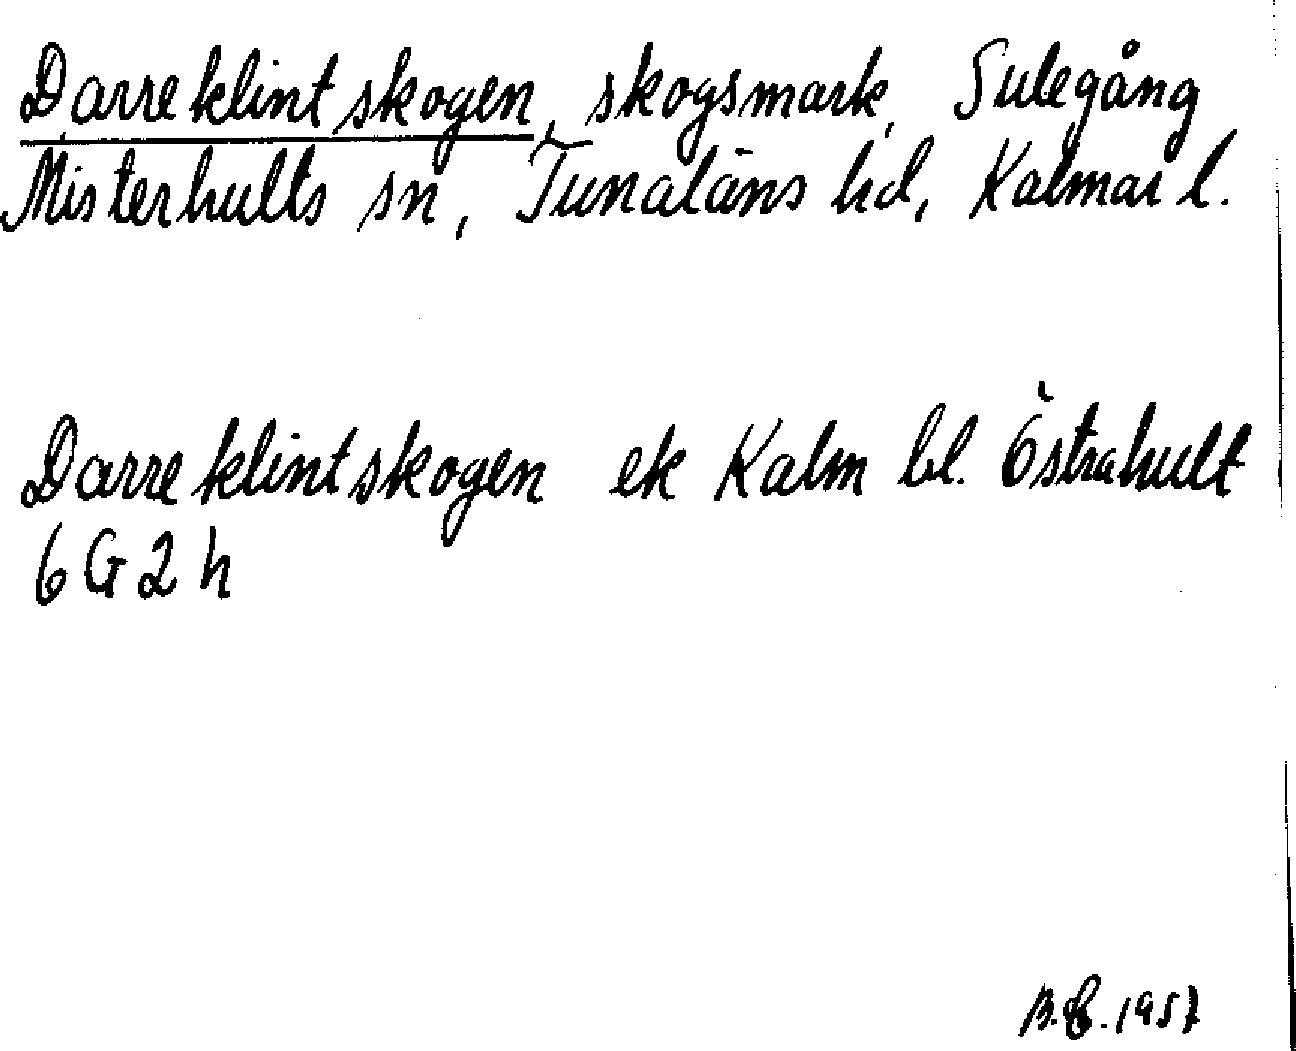 Darreklintskogen, skogsmark, Sulegång
Misterhults sn, Tunaläns hd, Kalmar l.
Darreklintskogen ek Kalm bl. Östrahult
6 G 2 h
1957